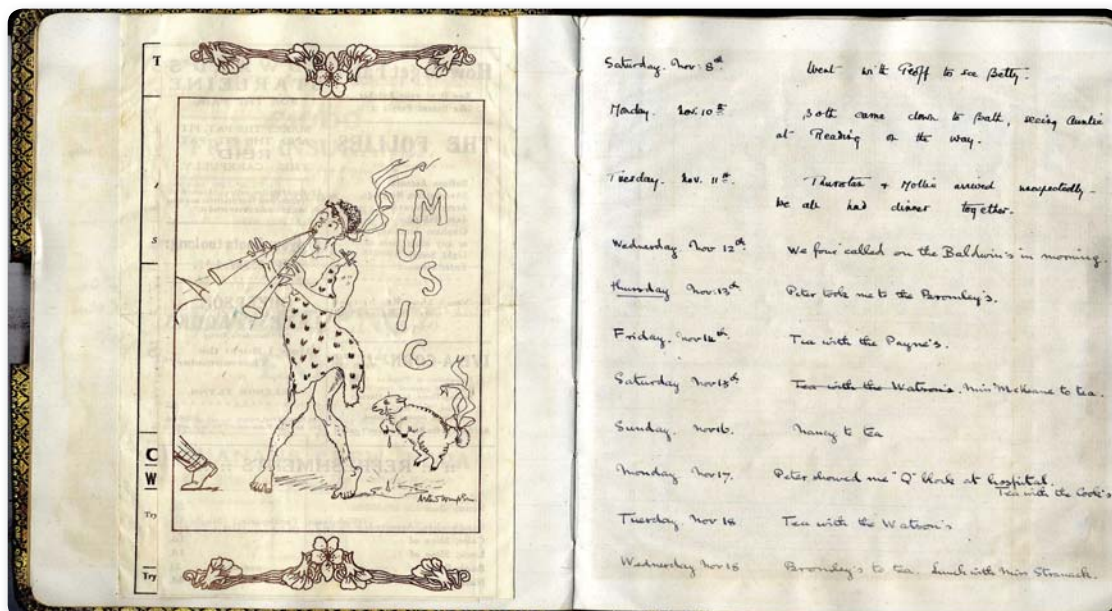 MUSIC
T
S
C
W
Try
Try
Saturday. Nov. 8th Went with Geoff to see Betty.
Monday. Nov. 10th Both came down to Bath, seeing Auntie
at Reading on the way.
Tuesday. Nov. 11th. Thurstan & Mollie arrived unexpectedly –
We all had dinner together.
Wednesday. Nov 12th We four called on the Baldwin's in morning.
Thursday Nov. 13th Peter took me to the Bromley's.
Friday. Nov 14th. Tea with the Payne's.
Saturday Nov 15th Tea with the Watson's. Miss to tea.
Sunday. Nov 16. Nancy to tea
Monday. Nov 17. Peter showed me "Q" block at hospital.
Tea with the Cook's
Tuesday. Nov 18 Tea with the Watson's
Wednesday Nov 18 Bromley's to tea. Lunch with Miss Stranack.